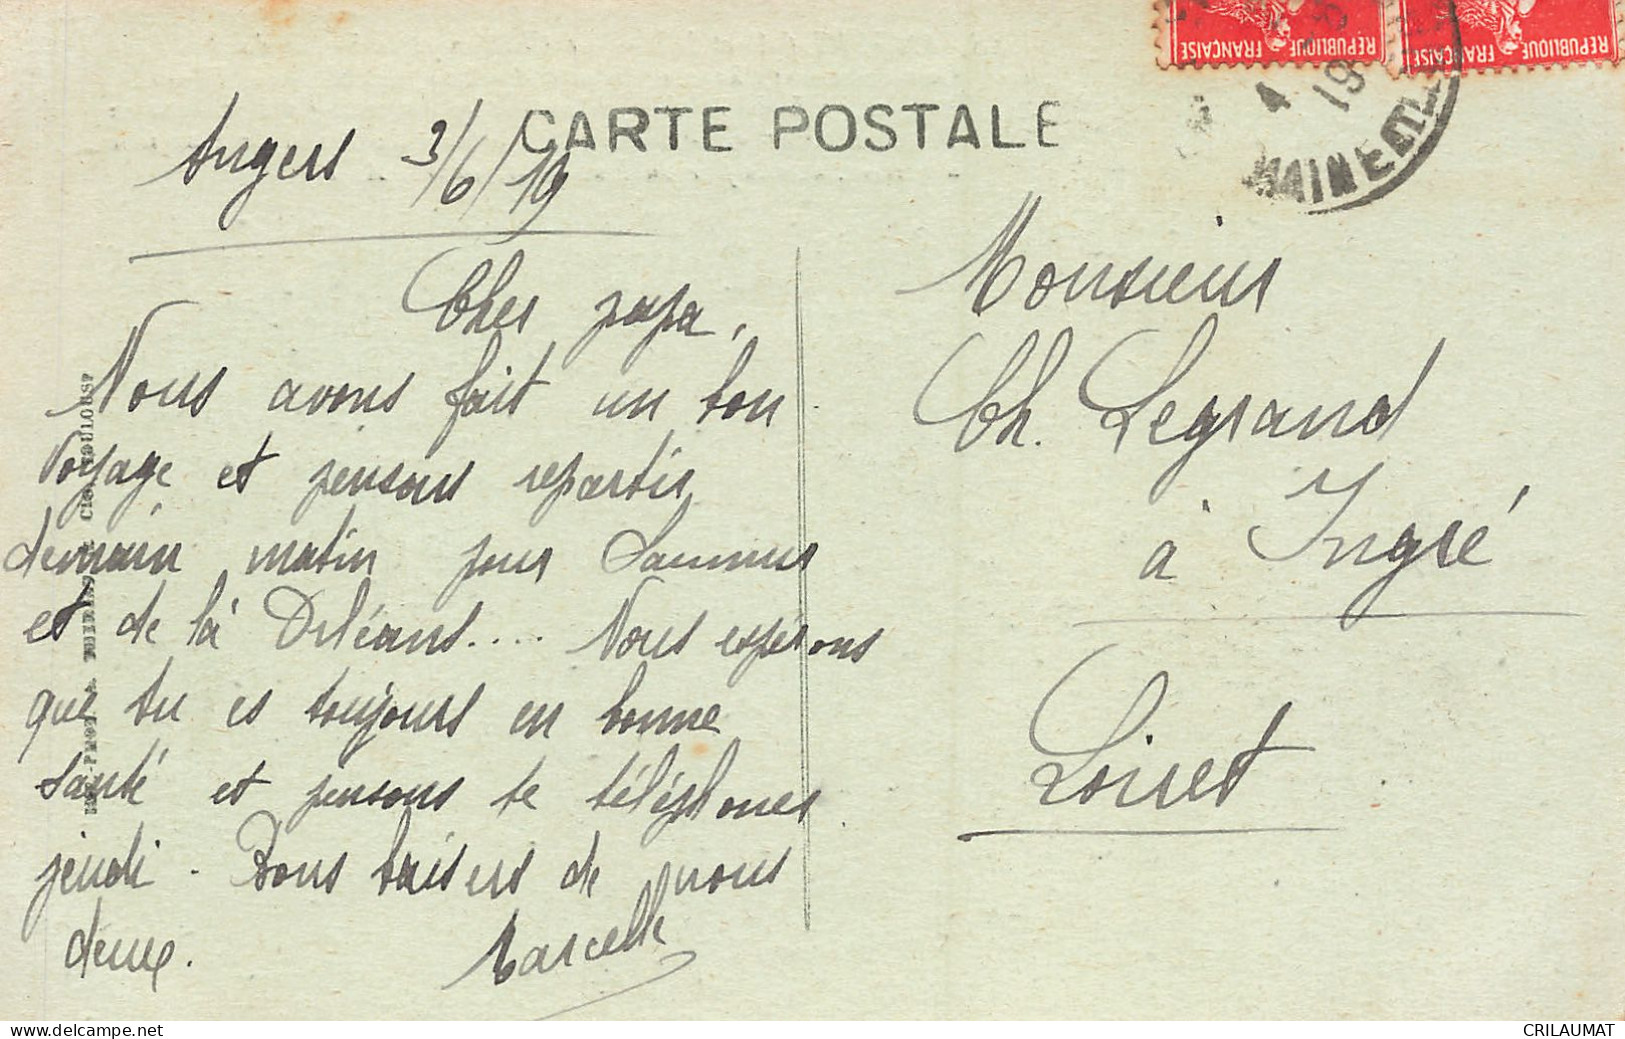 REPUBLIQUE FRANÇAISE
REPUBLIQUE FRANÇAISE
4
19
MAINE-ET-L
CARTE POSTALE
Angers 3/6/19
Cher papa,
Nous avons fait un bon
voyage et pensons repartir
demain matin pour Saumur
et de là Orléans.... Nous espérons
que tu es toujours en bonne
santé et pensons te téléphoner
jeudi. Bons baisers de nous
deux.
Marcelle
Monsieur
Ch. Legrand
à Ingré
Loiret
TOULOUSE
www.delcampe.net
CRILAUMAT